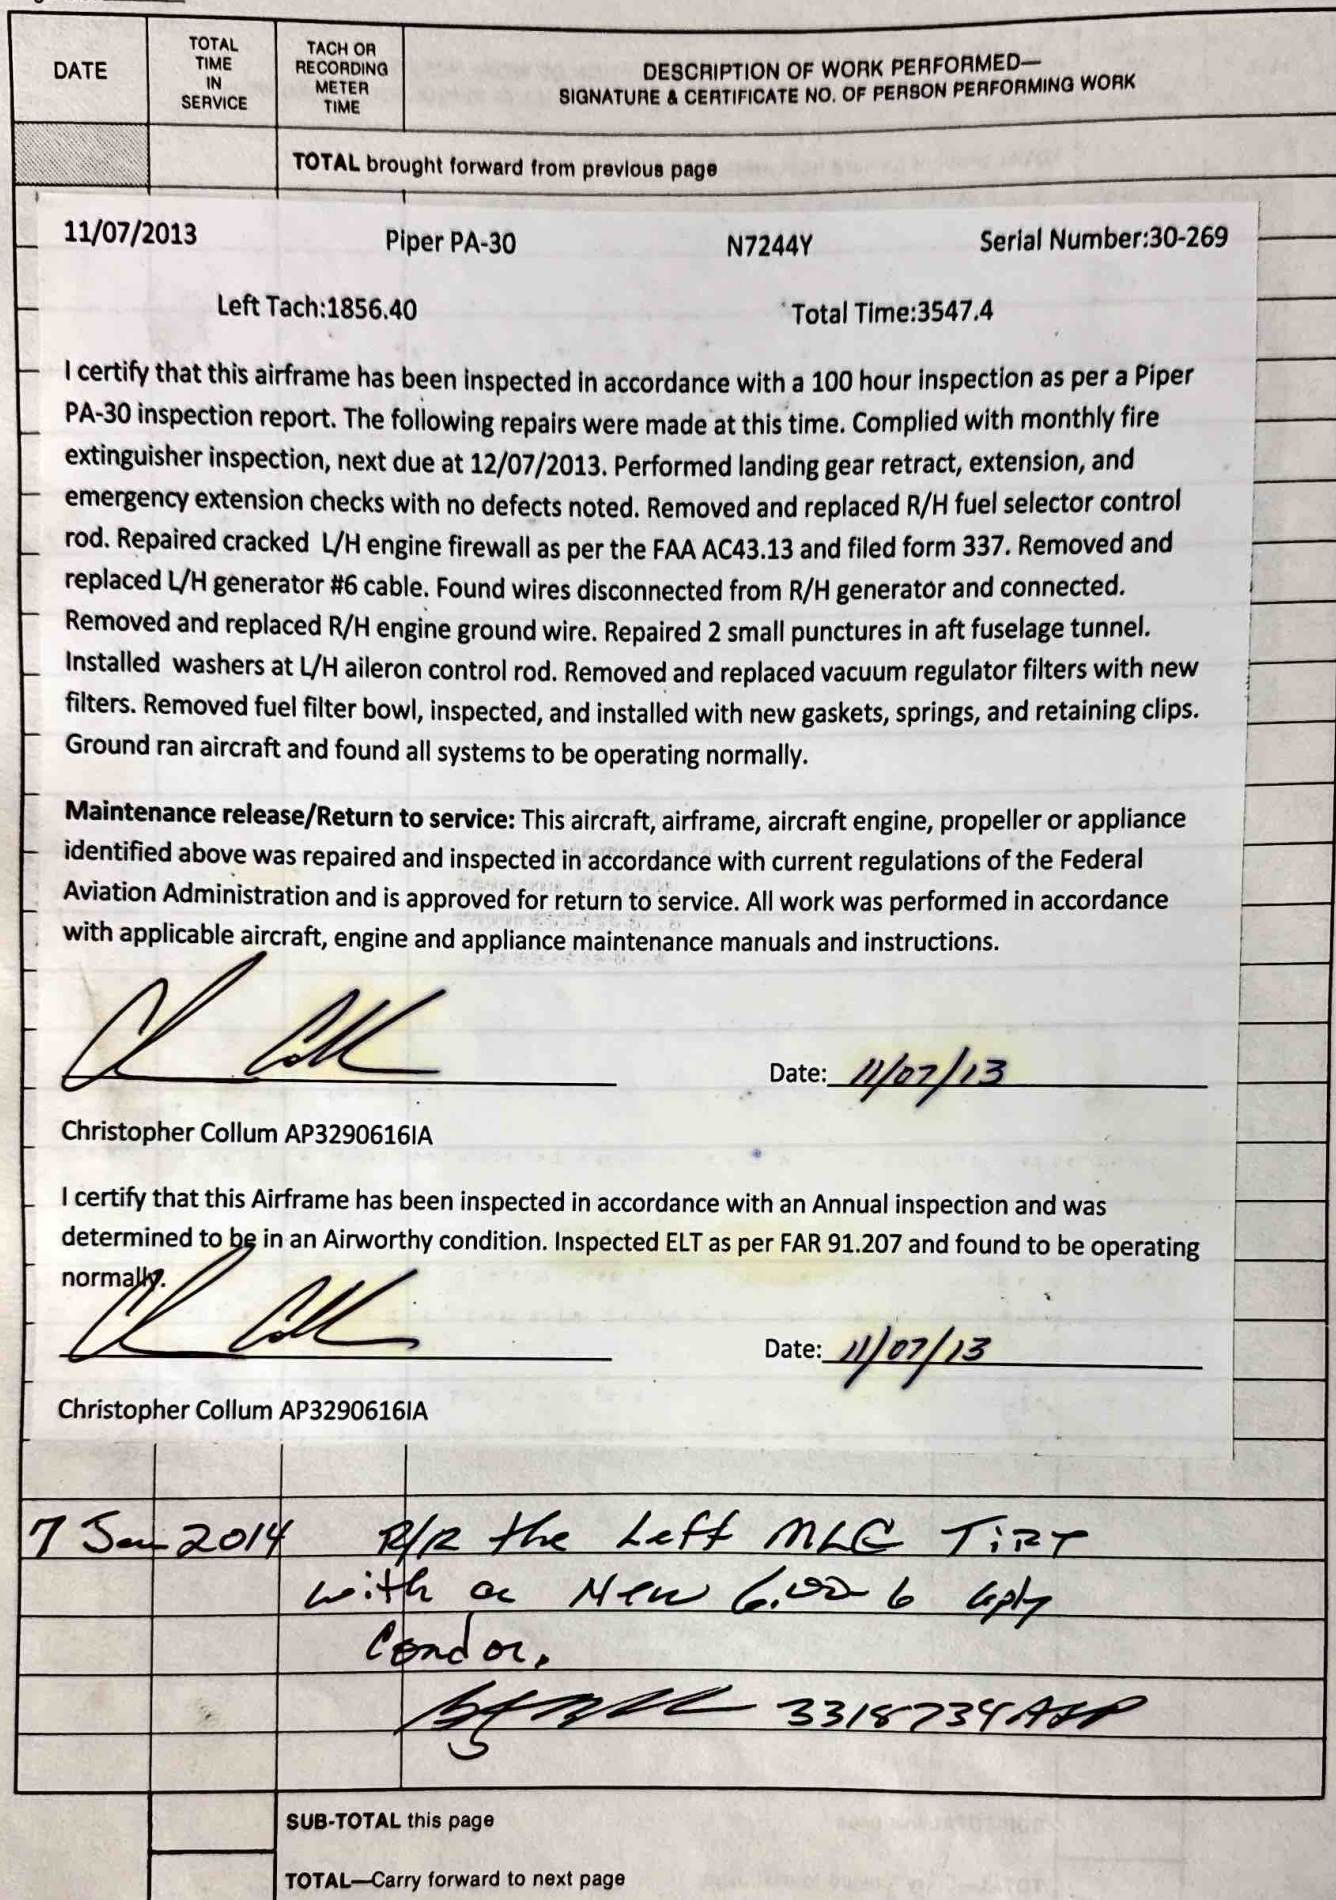 DATE
TOTAL
TIME
IN
SERVICE
TACH OR
RECORDING
METER
TIME
DESCRIPTION OF WORK PERFORMED—
SIGNATURE & CERTIFICATE NO. OF PERSON PERFORMING WORK
TOTAL brought forward from previous page
11/07/2013 Piper PA-30 N7244Y Serial Number:30-269
Left Tach:1856.40 Total Time:3547.4
I certify that this airframe has been inspected in accordance with a 100 hour inspection as per a Piper
PA-30 inspection report. The following repairs were made at this time. Complied with monthly fire
extinguisher inspection, next due at 12/07/2013. Performed landing gear retract, extension, and
emergency extension checks with no defects noted. Removed and replaced R/H fuel selector control
rod. Repaired cracked L/H engine firewall as per the FAA AC43.13 and filed form 337. Removed and
replaced L/H generator #6 cable. Found wires disconnected from R/H generator and connected.
Removed and replaced R/H engine ground wire. Repaired 2 small punctures in aft fuselage tunnel.
Installed washers at L/H aileron control rod. Removed and replaced vacuum regulator filters with new
filters. Removed fuel filter bowl, inspected, and installed with new gaskets, springs, and retaining clips.
Ground ran aircraft and found all systems to be operating normally.
Maintenance release/Return to service: This aircraft, airframe, aircraft engine, propeller or appliance
identified above was repaired and inspected in accordance with current regulations of the Federal
Aviation Administration and is approved for return to service. All work was performed in accordance
with applicable aircraft, engine and appliance maintenance manuals and instructions.
Date: 11/07/13
Christopher Collum AP3290616IA
I certify that this Airframe has been inspected in accordance with an Annual inspection and was
determined to be in an Airworthy condition. Inspected ELT as per FAR 91.207 and found to be operating
normally.
Date: 11/07/13
Christopher Collum AP3290616IA
7 Jan 2014 R/R the Left MLG Tire
with a New 6.00 6 6ply
Condor.
3318734 A&P
SUB-TOTAL this page
TOTAL—Carry forward to next page